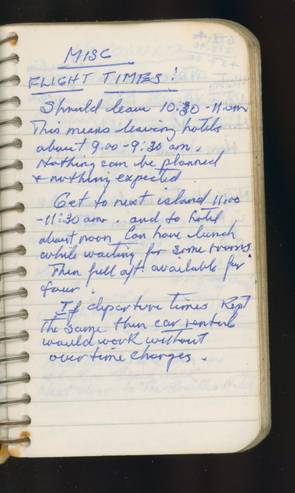 MISC
FLIGHT TIMES!
Should leave 10:30 - 11 am
This means leaving hotels
about 9.00 - 9:30 am.
Nothing can be planned
+ nothing expected
Get to next island 11.00
- 11:30 am. and to hotel
about noon Can have lunch
while waiting for some rooms.
Then full aft. available for
tour.
If departure times kept
the same then car rentals
would work without
over time charges.